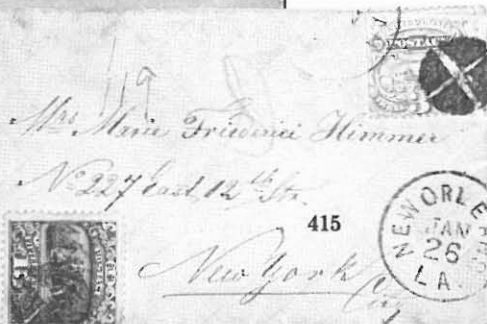 119
Mrs Marie Friederici Himmer
No 227 East 12th Str.
415
New York
City
NEW ORLE
JAN
26
LA.
15